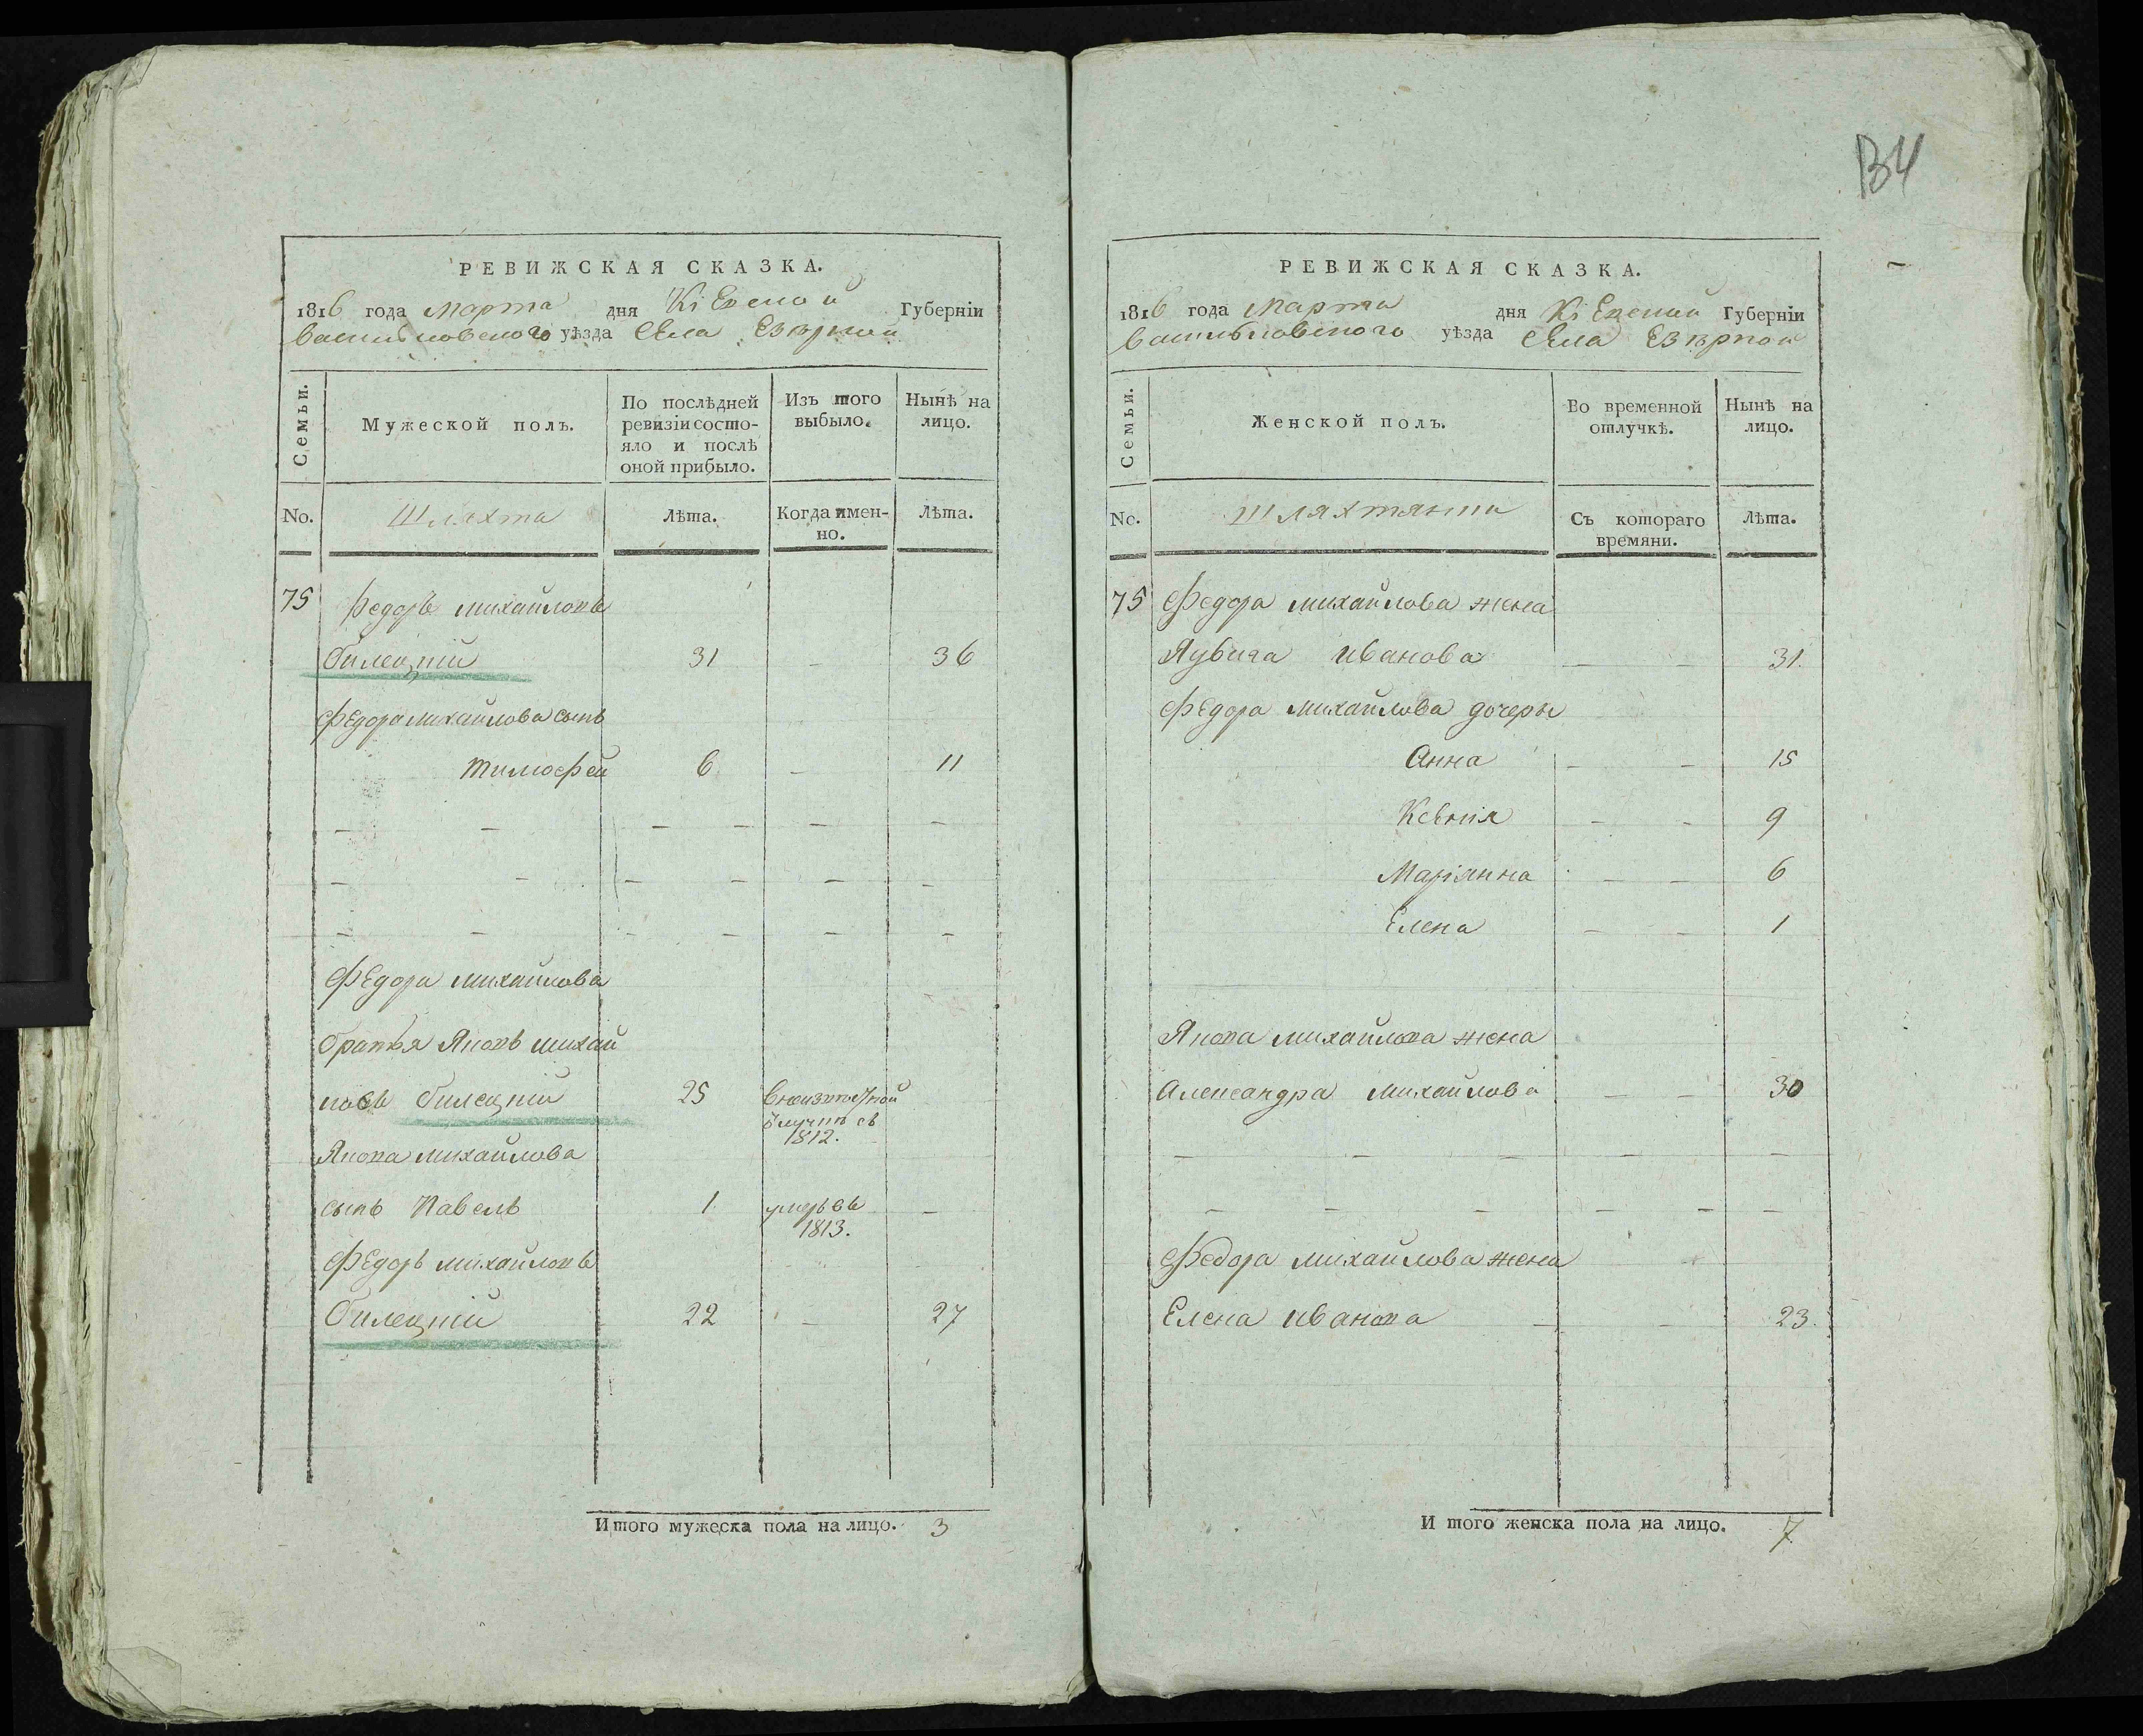 134
РЕВИЖСКАЯ СКАЗКА.
1816 года Марта дня Кіевской Губерніи
Васильковского уѣзда Села Езѣрной
Семьи.
Мужеской полъ.
По послѣдней ревизіи состояло и послѣ оной прибыло.
Изъ того выбыло.
Нынѣ на лицо.
No.
Шляхта
Лѣта.
Когда имен-
но.
Лѣта.
75 Федоръ михайловъ
билецкій 31 – 36
Федора михайлова сынъ
тимофей 6 – 11
Федора михайлова
братья Яковъ михай
ловъ билецкій 25
1812.
Якова михайлова
сынъ Павелъ 1 умеръ въ –
1813.
Федоръ михайловъ
билецкій 22 – 27
Итого мужеска пола на лицо. 3
РЕВИЖСКАЯ СКАЗКА.
1816 года Марта дня Кіевской Губерніи
Васильковского уѣзда Села Езѣрной
Семьи.
Женской полъ.
Во временной отлучкѣ.
Нынѣ на лицо.
No.
Шляхтянки
Съ котораго
времяни.
Лѣта.
75 Федора михайлова жена
Ядвига иванова – – 31.
Федора михайлова дочеры
Анна – – 15
Ксенія – – 9
Маріянна – – 6
Елена – – 1
Якова михайлова жена
Александра михайлова – – 30
Федора михайлова жена
Елена иванова – – 23.
И того женска пола на лицо. 7